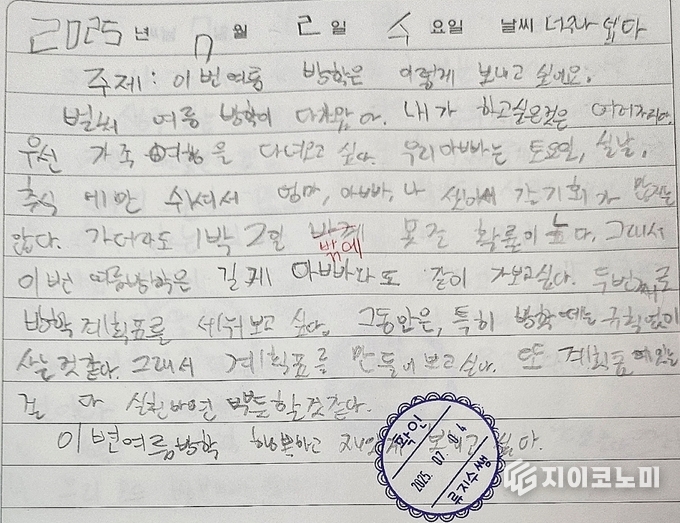 2025년 7월 2일 수요일 날씨 너무나 덥다
주제: 이번여름 방학은 이렇게 보내고 싶어요.
벌써 여름 방학이 다가왔다. 내가 하고싶은것은 여러가지다.
우선 가족 여행을 다녀오고 싶다. 우리아빠는 토요일, 설날,
추석 에만 쉬셔서 엄마, 아빠, 나 셋이서 갈 기회가 많지는
않다. 가더라도 1박 2일 바께 못갈 확률이 높다. 그래서
밖에
이번 여름방학은 길게 아빠와도 같이 가보고싶다. 두번째로
방학계획표를 세워보고 싶다. 그동안은, 특히 방학때는 규칙없이
사는것같다. 그래서 계획표를 만들어보고싶다. 또 계획표에있는
걸 다 실천하면 뿌듯할것같다.
이번여름방학 행복하고 보내고 싶다.
확인
2025. 07. 0 4
류지수쌤
지이코노미